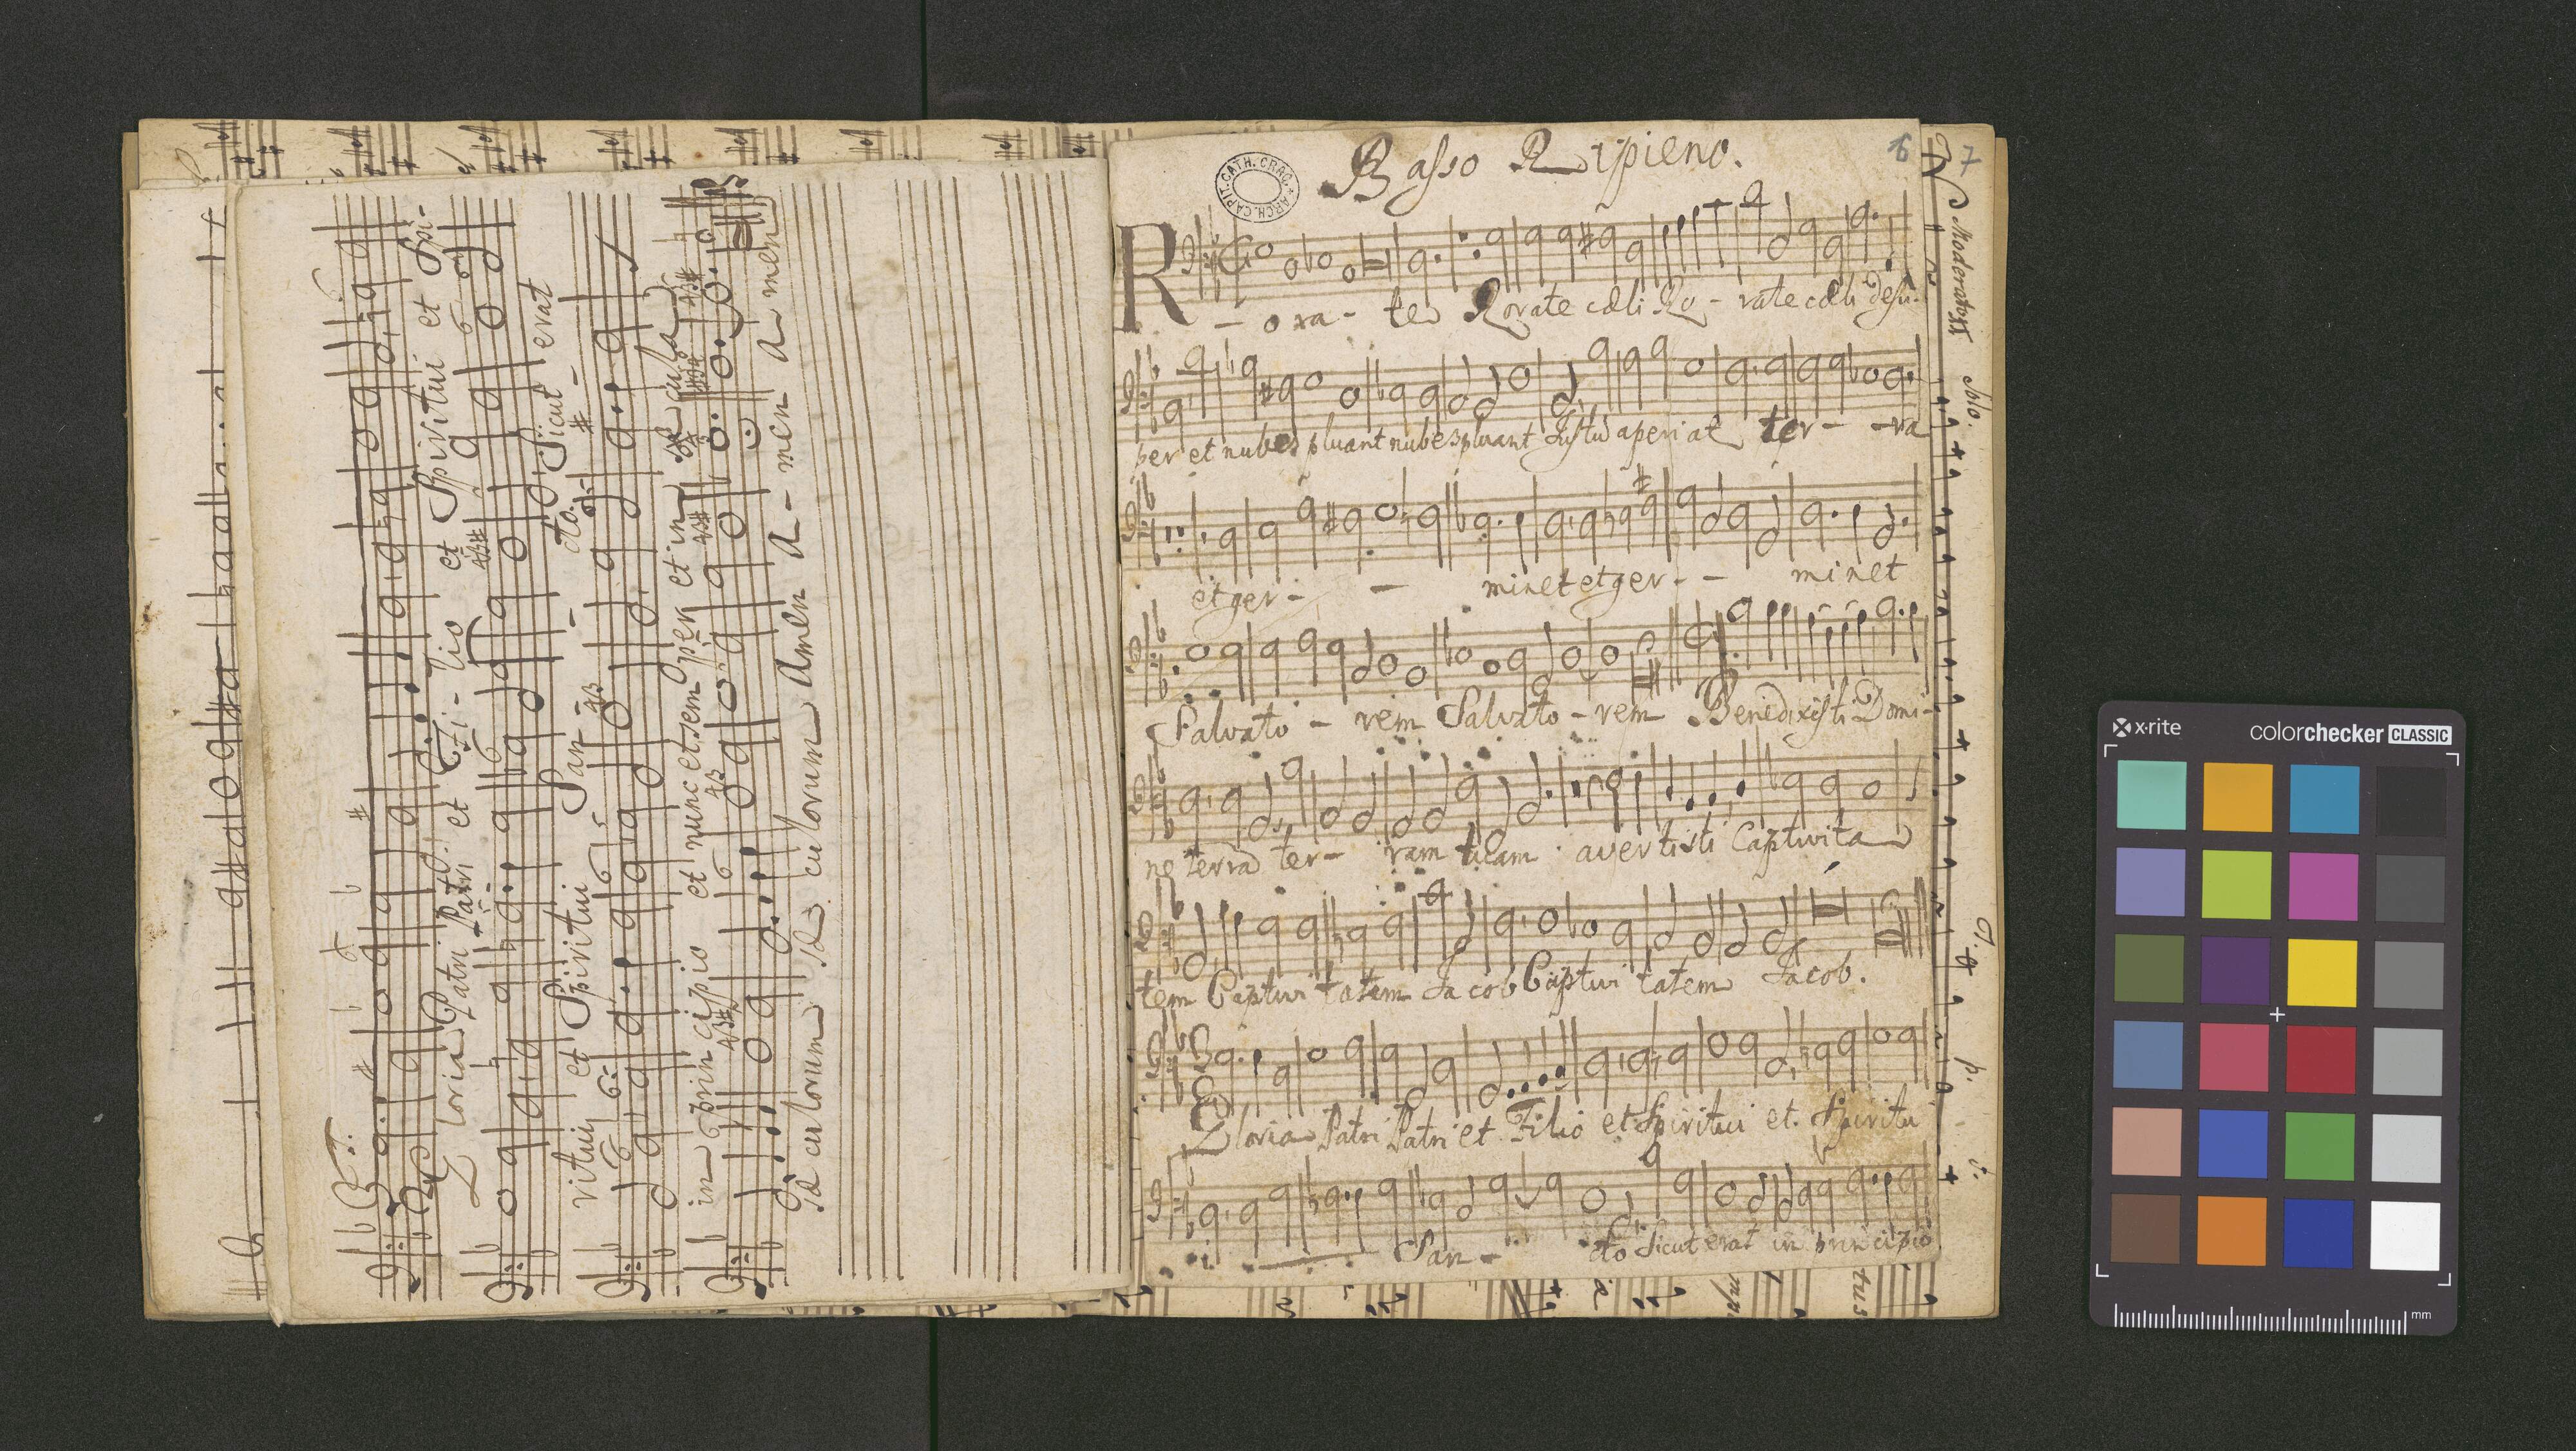 Gloria Patri Patri et Fi- lio et Spiritui et Spi-
ritui et Spiritui San - - cto. Sicut - erat
in principio et nunc et semper et in sæcula
sæculorum sæculorum Amen A - men A men
Basso Ripieno.
6
7
ARCH. CAPIT. CATH. CRAC.
R - o ra - te Rorate cæli Ro - rate cæli desu-
per et nubes pluant nubes pluant Justū aperiat ter - - ra
et ger - - minet et ger - - minet
Salvato - rem Salvato - rem Benedixisti Domi-
ne terrā ter - ram tuam avertisti Captivita
tem Captivi tatem Jacob Captivi tatem Jacob.
Gloria Patri Patri et Filio et Spiritui et Spiritu
i San - cto Sicut erat in principio
Solo.
T.
p.
tus
x-rite
colorchecker CLASSIC
mm